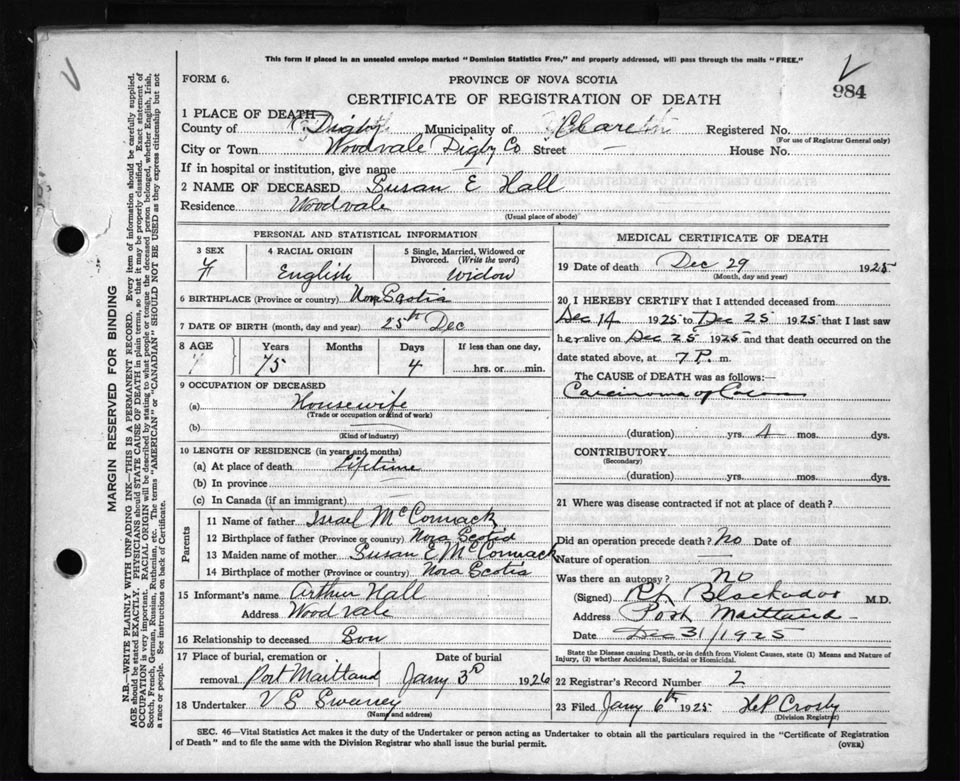 This form if placed in an unsealed envelope marked "Dominion Statistics Free," and properly addressed, will pass through the mails "FREE."
FORM 6.
PROVINCE OF NOVA SCOTIA
984
CERTIFICATE OF REGISTRATION OF DEATH
1 PLACE OF DEATH
County of Digby Municipality of Clare Registered No.
(For use of Registrar General only)
City or Town Woodvale Digby Co Street — House No.
If in hospital or institution, give name —
2 NAME OF DECEASED Susan E Hall
Residence Woodvale
(Usual place of abode)
PERSONAL AND STATISTICAL INFORMATION
3 SEX 4 RACIAL ORIGIN 5 Single, Married, Widowed or Divorced. (Write the word)
F English Widow
6 BIRTHPLACE (Province or country) Nova Scotia
7 DATE OF BIRTH (month, day and year) 25th Dec
8 AGE Years Months Days If less than one day,
75 4 hrs. or min.
9 OCCUPATION OF DECEASED
(a) Housewife
(Trade or occupation or kind of work)
(b) —
(Kind of industry)
10 LENGTH OF RESIDENCE (in years and months)
(a) At place of death Lifetime
(b) In province —
(c) In Canada (if an immigrant) —
Parents
11 Name of father Israel McCormack
12 Birthplace of father (Province or country) Nova Scotia
13 Maiden name of mother Susan E McCormack
14 Birthplace of mother (Province or country) Nova Scotia
15 Informant's name Arthur Hall
Address Woodvale
16 Relationship to deceased Son
17 Place of burial, cremation or removal Port Maitland Date of burial Jany 3rd 1926
18 Undertaker V S Swaney
(Name and address)
MEDICAL CERTIFICATE OF DEATH
19 Date of death Dec 29 1925
(Month, day and year)
20 I HEREBY CERTIFY that I attended deceased from
Dec 14 1925 to Dec 25 1925 that I last saw
her alive on Dec 25 1925 and that death occurred on the
date stated above, at 7 P. m.
The CAUSE OF DEATH was as follows:—
Carcinoma of Colon
(duration) yrs. 4 mos. dys.
CONTRIBUTORY
(Secondary)
(duration) yrs. mos. dys.
21 Where was disease contracted if not at place of death?
Did an operation precede death? No Date of
Nature of operation —
Was there an autopsy? no
(Signed) Blackadar M.D.
Address Port Maitland
Date Dec 31/1925
State the Disease causing Death, or in death from Violent Causes, state (1) Means and Nature of
Injury, (2) whether Accidental, Suicidal or Homicidal.
22 Registrar's Record Number 2
23 Filed Jany 6th 1925 H P Crosby
(Division Registrar)
SEC. 46—Vital Statistics Act makes it the duty of the Undertaker or person acting as Undertaker to obtain all the particulars required in the "Certificate of Registration
of Death" and to file the same with the Division Registrar who shall issue the burial permit.
(OVER)
MARGIN RESERVED FOR BINDING
N.B.—WRITE PLAINLY WITH UNFADING INK—THIS IS A PERMANENT RECORD. Every item of information should be carefully supplied.
AGE should be stated EXACTLY. PHYSICIANS should STATE CAUSE OF DEATH in plain terms, so that it may be properly classified. Exact statement of
OCCUPATION is very important. RACIAL ORIGIN will be described by stating to what people or tongue the deceased person belonged, whether English, Irish,
Scotch, French, German, Russian, Ruthenian, etc. The terms "AMERICAN" or "CANADIAN" SHOULD NOT BE USED as they express citizenship but not
a race or people. See instructions on back of Certificate.